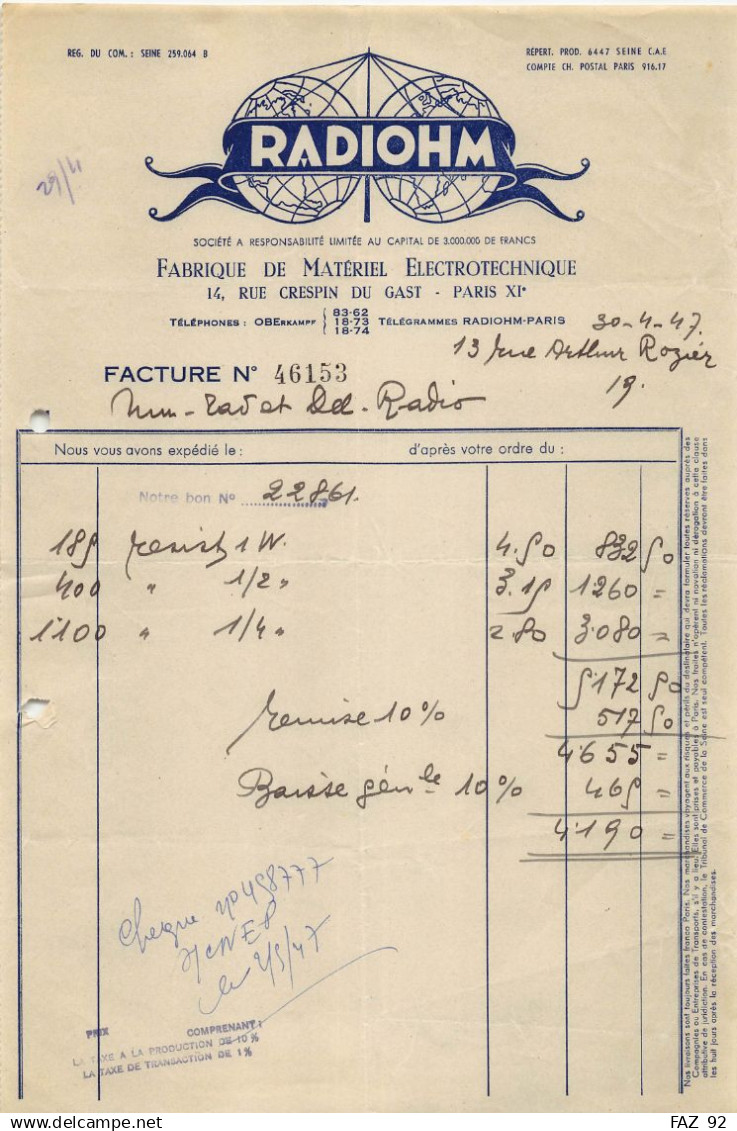 REG. DU COM. : SEINE 259.064 B
RÉPERT. PROD. 6447 SEINE C.A.E
COMPTE CH. POSTAL PARIS 916.17
29/4
RADIOHM
SOCIÉTÉ A RESPONSABILITÉ LIMITÉE AU CAPITAL DE 3.000.000 DE FRANCS
FABRIQUE DE MATÉRIEL ELECTROTECHNIQUE
14, RUE CRESPIN DU GAST - PARIS XIe
TÉLÉPHONES : OBERKAMPF 83-62 18-73 18-74 TÉLÉGRAMMES RADIOHM-PARIS
30-4-47.
13 rue Arthur Rozier
19.
FACTURE N° 46153
Radio
Nous vous avons expédié le : d'après votre ordre du :
Notre bon No 22861.
185 resist 1 W. 4.50 832 50
400 " 1/2 " 3.15 1260 =
1100 " 1/4 " 2.80 3.080 =
5172 50
remise 10% 517 50
4655 =
Baisse génle 10% 465 =
4190 =
Cheque no 458777
le 2/5/47
PRIX COMPRENANT :
LA TAXE A LA PRODUCTION DE 10 %
LA TAXE DE TRANSACTION DE 1 %
Nos livraisons sont toujours faites franco Paris. Nos marchandises voyagent aux risques et périls du destinataire qui devra formuler toutes réserves auprès des
Compagnies ou Entreprises de Transports, s'il y a lieu. Elles sont prises et payables à Paris. Nos traites n'opèrent ni novation ni dérogation à cette clause
attributive de juridiction. En cas de contestation, le Tribunal de Commerce de la Seine est seul compétent. Toutes les réclamations devront être faites dans
les huit jours après la réception des marchandises.
FAZ 92